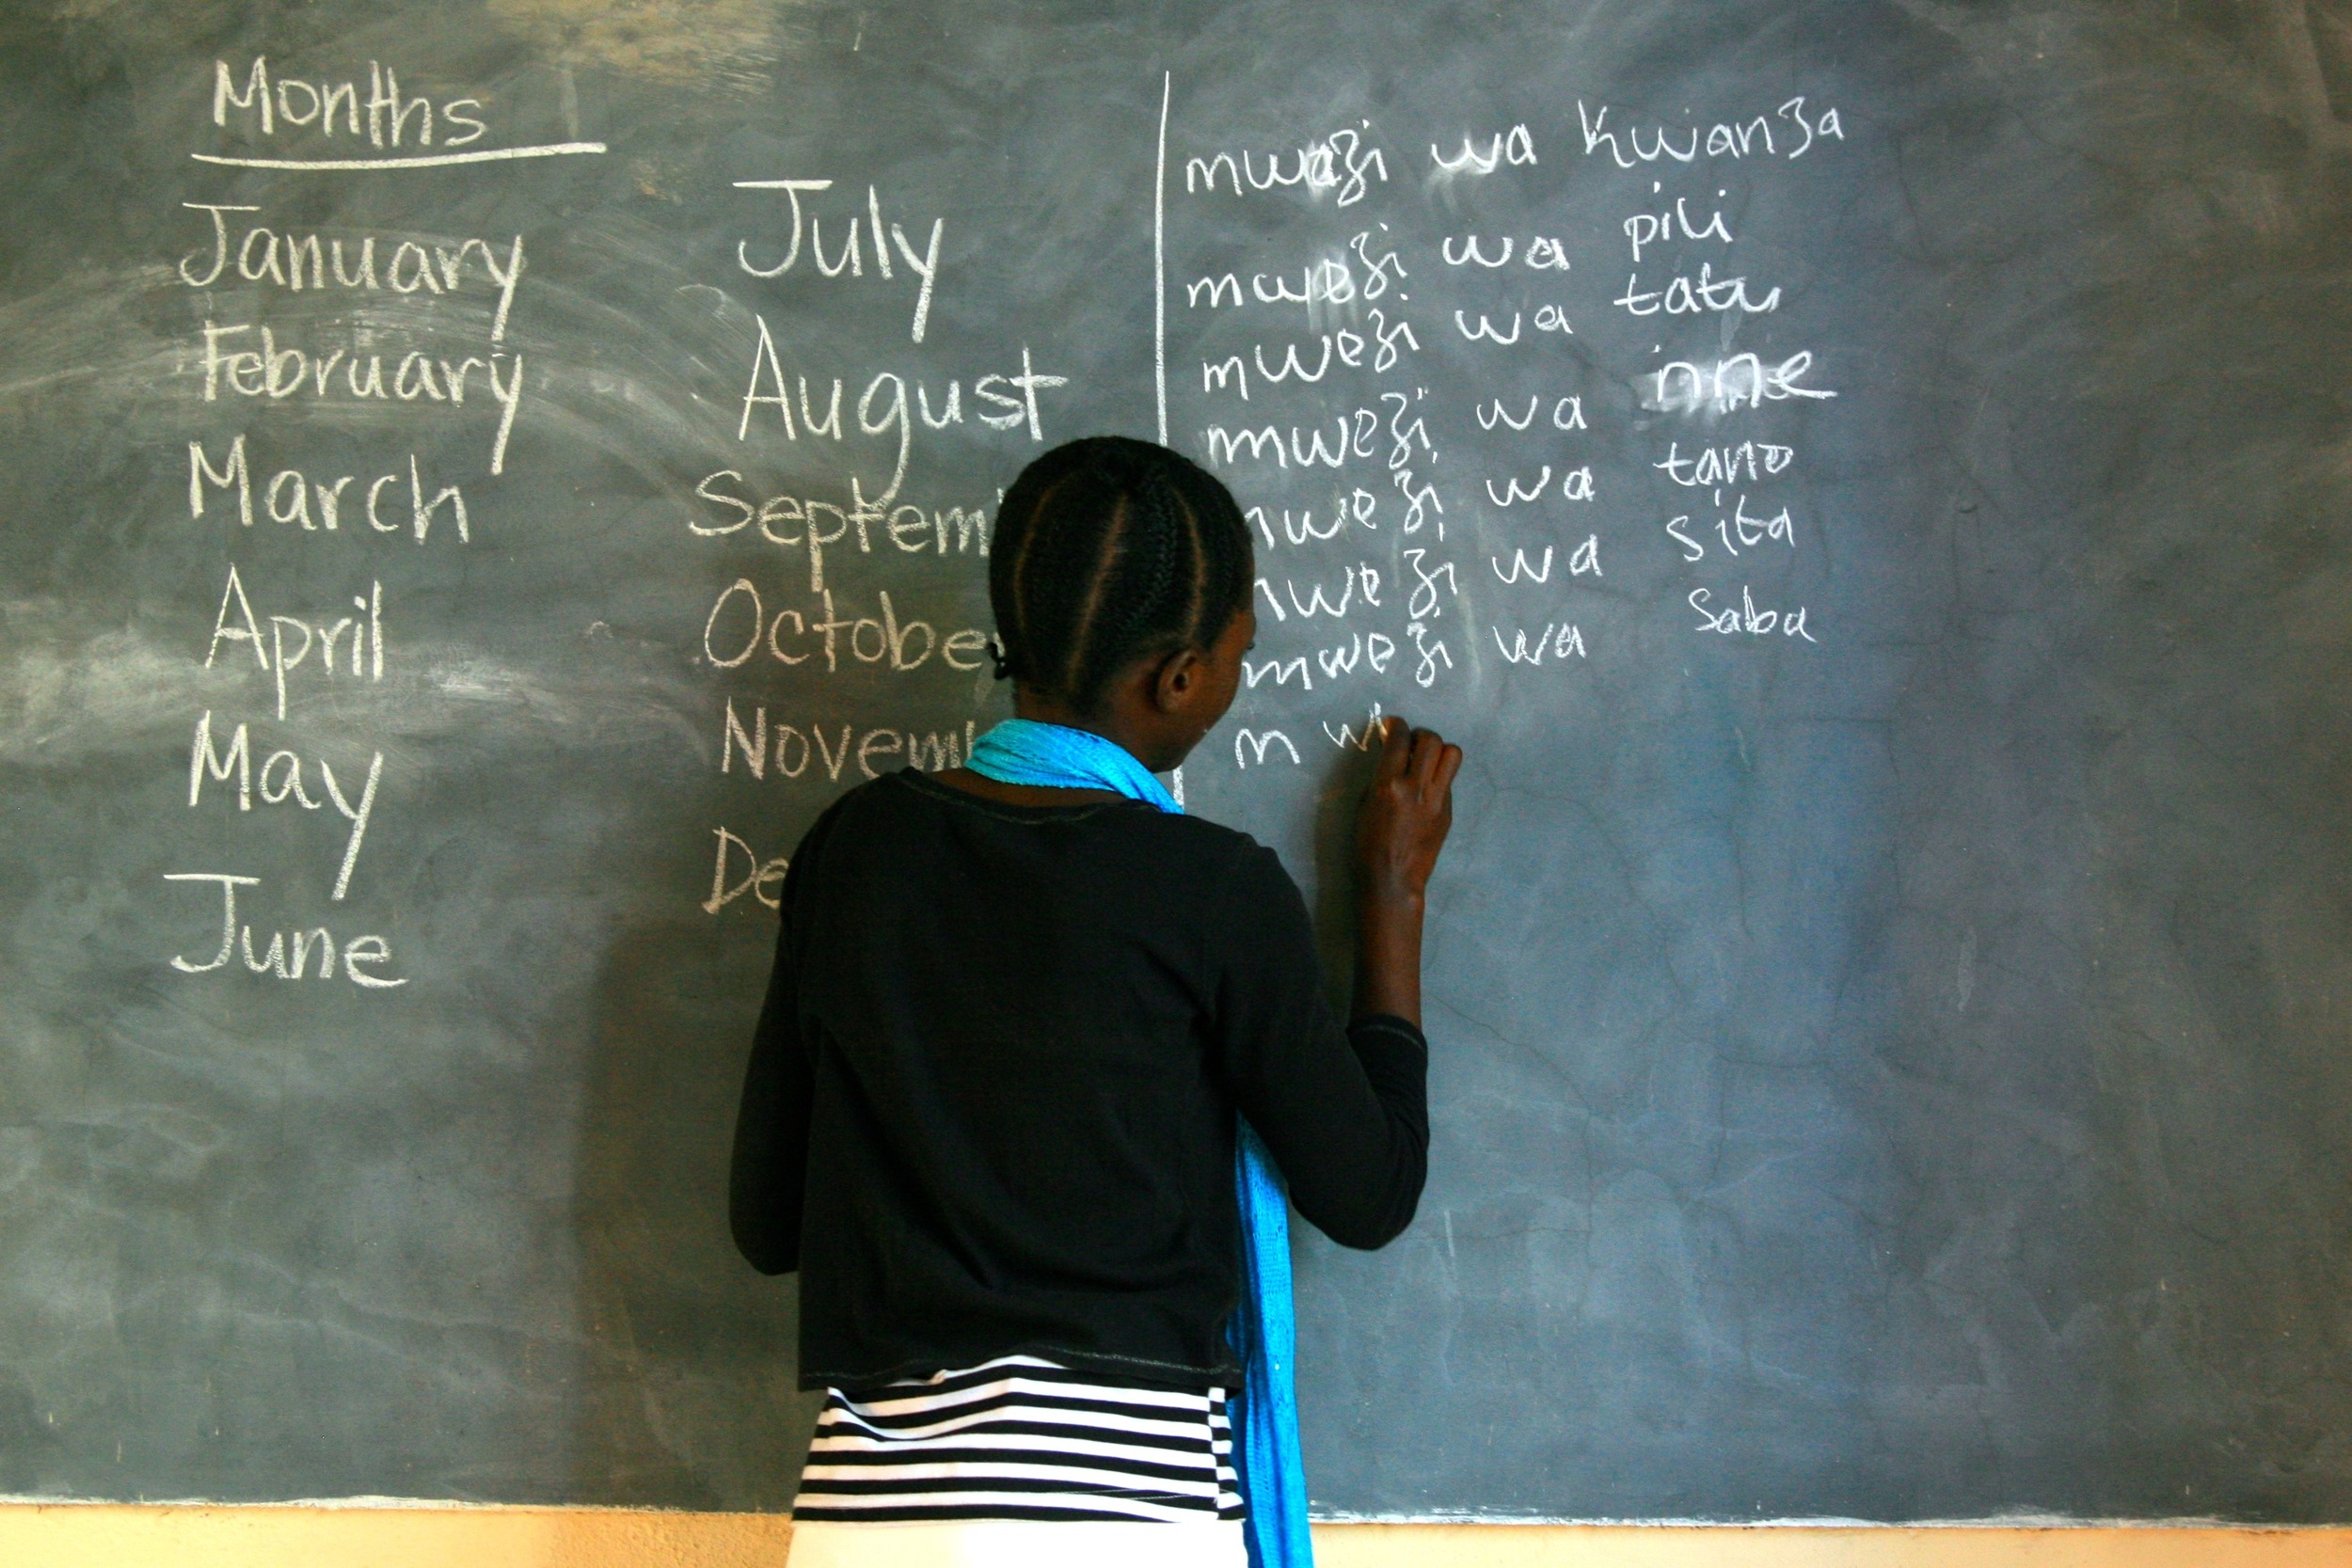 Months
January
February
March
April
May
June
July
August
Septem
Octobe
Novem
De
mwezi wa Kwanza
mwezi wa pili
mwezi wa tatu
mwezi wa nne
mwezi wa tano
mwezi wa sita
mwezi wa Saba
m w